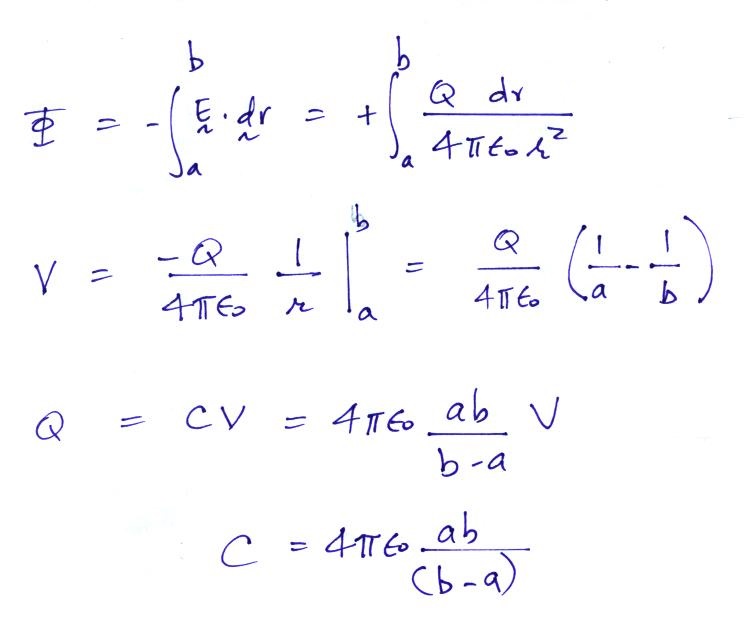 Φ = -∫_a^b Ḛ · dr̰ = +∫_a^b Q dr / 4πε₀r²
V = -Q/4πε₀ 1/r |_a^b = Q/4πε₀ (1/a - 1/b)
Q = CV = 4πε₀ ab/b-a V
C = 4πε₀ ab/(b-a)